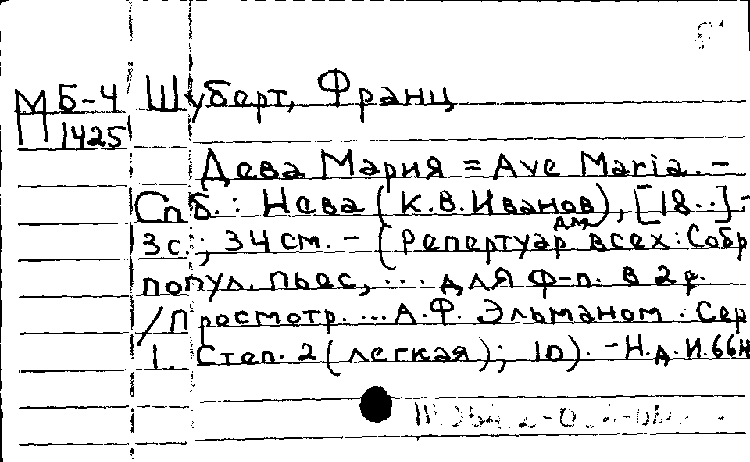 МБ-4 Шуберт, Франц
П 1425
Дева Мария = Ave Maria. -
Спб.: Нева (К.В.Иванов), [18..].-
3с.; 34см. - (Репертуар для всех: Собр
попул. пьес, ... для ф-п. в 2р.
/Просмотр. ... А.Ф. Эльманом. Сер
1. Степ. 2 (легкая); 10). - Н.д.И.66Н